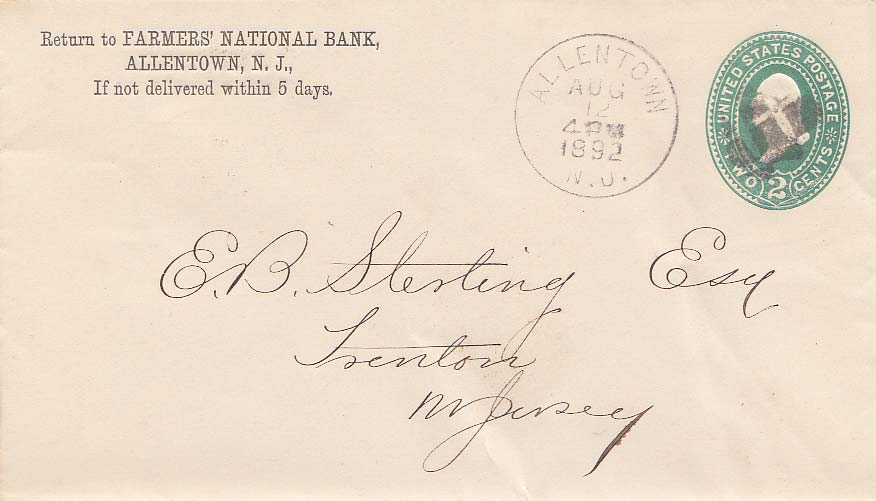 Return to FARMERS' NATIONAL BANK,
ALLENTOWN, N. J.,
If not delivered within 5 days.
ALLENTOWN
AUG
12
4PM
1892
N.J.
UNITED STATES POSTAGE
TWO 2 CENTS
E.B. Sterling Esq
Trenton
N Jersey